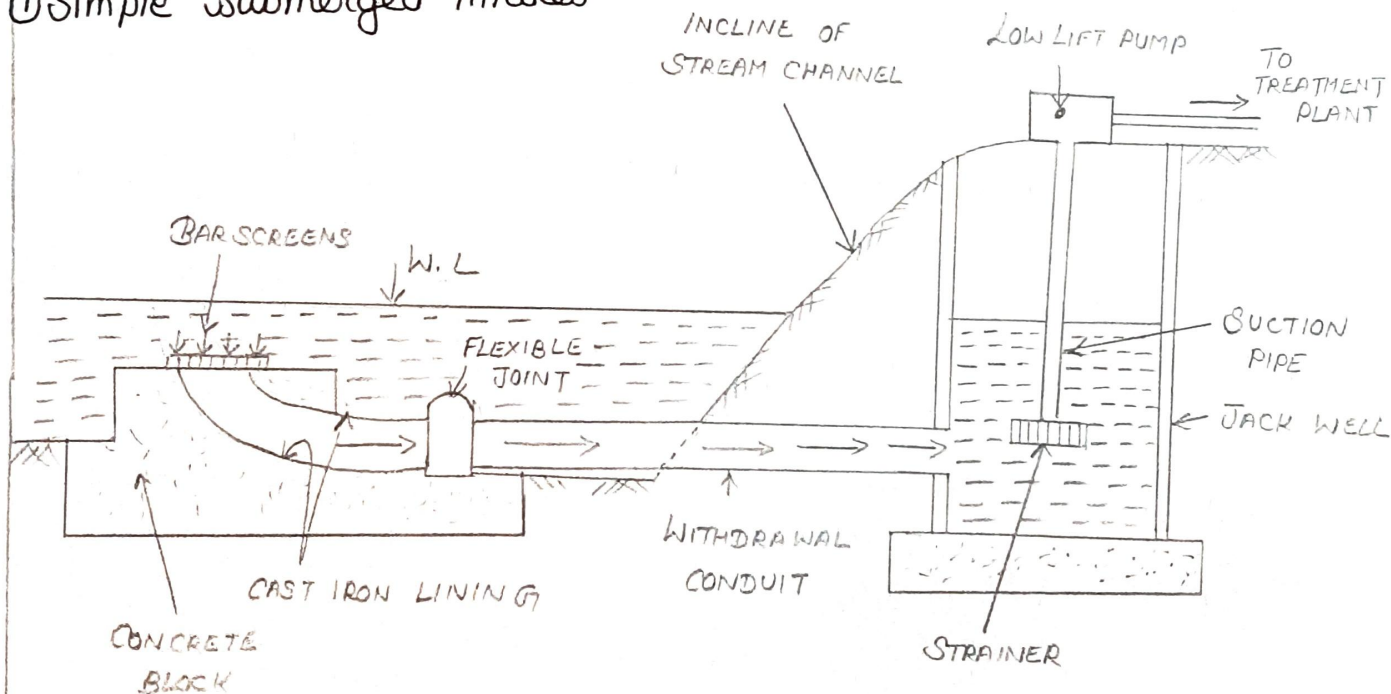 ① Simple Submerged Intakes
INCLINE OF
STREAM CHANNEL
LOW LIFT PUMP
TO
TREATMENT
PLANT
BAR SCREENS
W.L
FLEXIBLE
JOINT
SUCTION
PIPE
JACK WELL
WITHDRAWAL
CONDUIT
CAST IRON LINING
CONCRETE
BLOCK
STRAINER